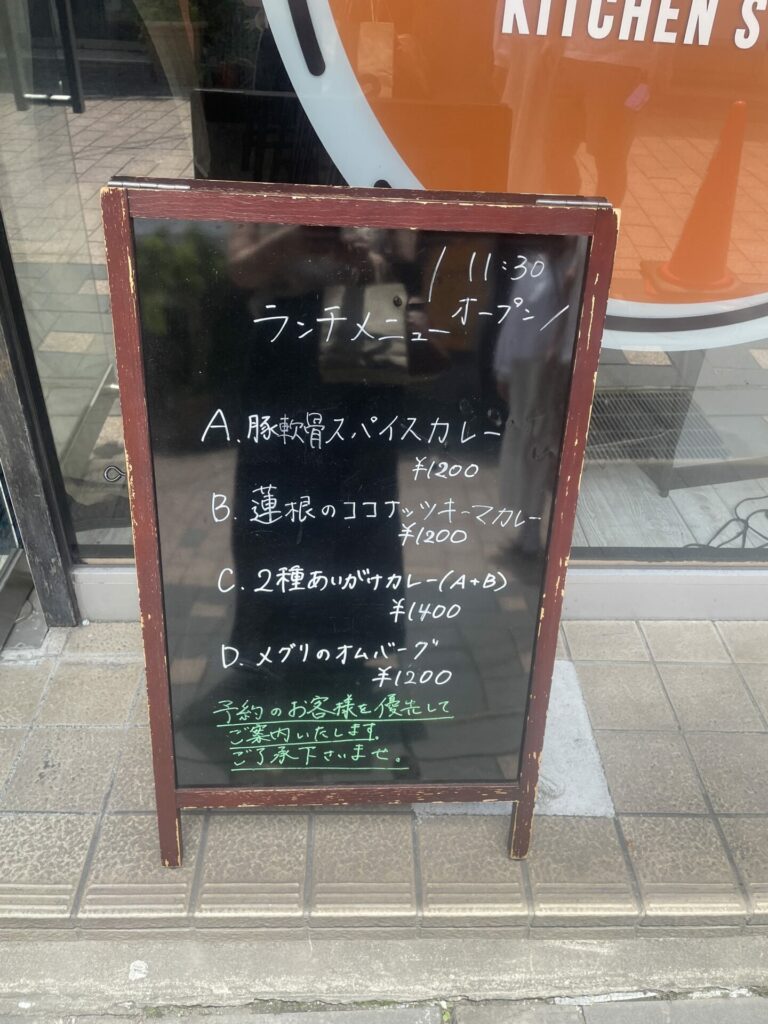 KITCHEN S
11:30
オープン
ランチメニュー
A. 豚軟骨スパイスカレー
¥1200
B. 蓮根のココナッツキーマカレー
¥1200
C. 2種あいがけカレー(A+B)
¥1400
D. メグリのオムバーグ
¥1200
予約のお客様を優先して
ご案内いたします。
ご了承下さいませ。